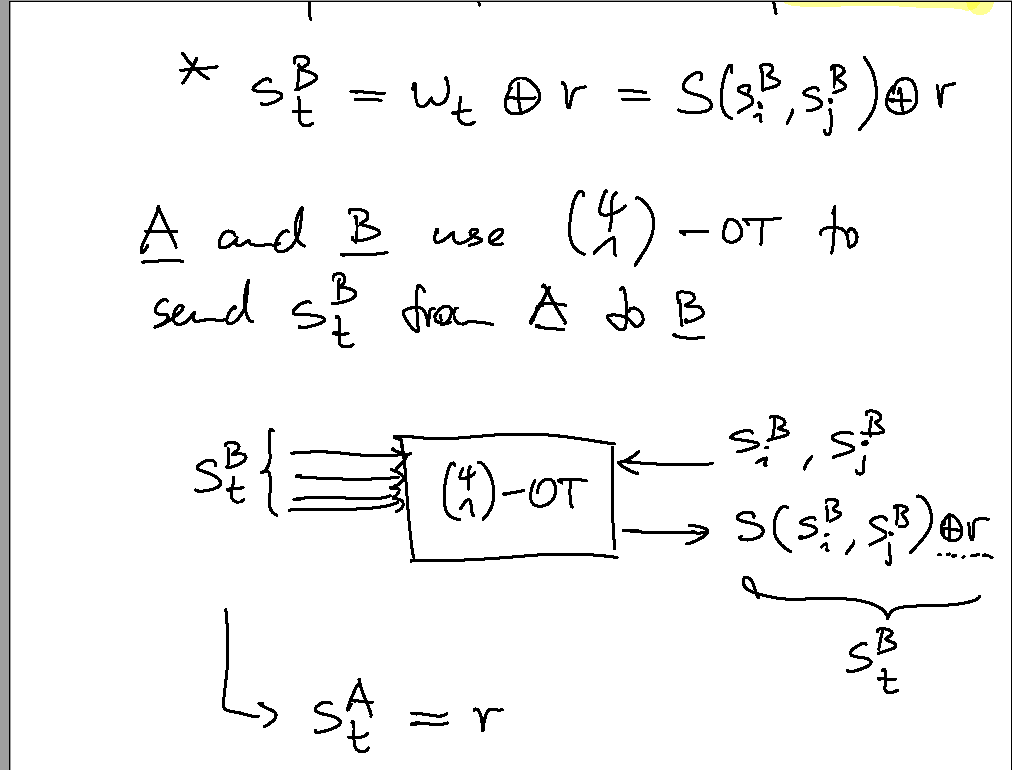 * s_t^B = w_t ⊕ r = S(s_i^B, s_j^B) ⊕ r
A and B use (4 1)-OT to
send s_t^B from A to B
s_i^B, s_j^B
s_t^B { (4 1)-OT
S(s_i^B, s_j^B) ⊕ r
s_t^B
s_t^A = r